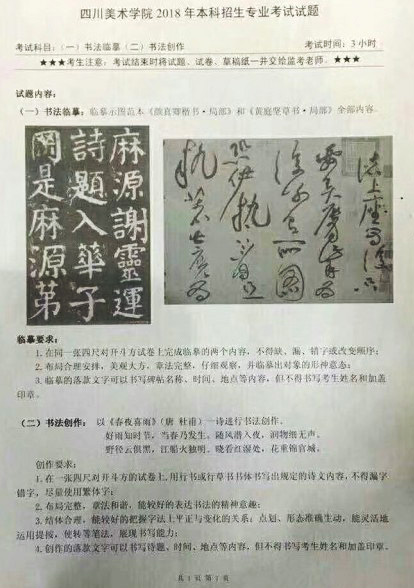 四川美术学院 2018 年本科招生专业考试试题
考试科目：（一）书法临摹（二）书法创作 考试时间：3 小时
★★★考生注意：考试结束时将试题、试卷、草稿纸一并交给监考老师。★★★
试题内容：
（一）书法临摹：临摹示图范本《颜真卿楷书·局部》和《黄庭坚草书·局部》全部内容。
麻源謝靈運
詩題入華子
岡是麻源第
諸上座
临摹要求：
1.在同一张四尺对开斗方试卷上完成临摹的两个内容，不得缺、漏、错字或改变顺序；
2.布局合理安排，美观大方，章法完整，仔细观察，并临摹出对象的形神意态；
3.临摹的落款文字可以书写碑帖名称、时间、地点等内容，但不得书写考生姓名和加盖
印章。
（二）书法创作： 以《春夜喜雨》（唐 杜甫）一诗进行书法创作。
好雨知时节，当春乃发生。随风潜入夜，润物细无声。
野径云俱黑，江船火独明。晓看红湿处，花重锦官城。
创作要求：
1.在一张四尺对开斗方的试卷上，用行书或行草书书体书写出规定的诗文内容，不得漏字
错字，尽量使用繁体字；
2.布局完整，章法和谐，能较好的表达书法的精神意趣；
3.结体合理，能较好的把握字法上平正与变化的关系；点划、形态准确生动，能灵活地
运用提按，使转等笔法，展现书写能力；
4.创作的落款文字可以书写诗题、时间、地点等内容，但不得书写考生姓名和加盖印章。
共 1 页 第 1 页